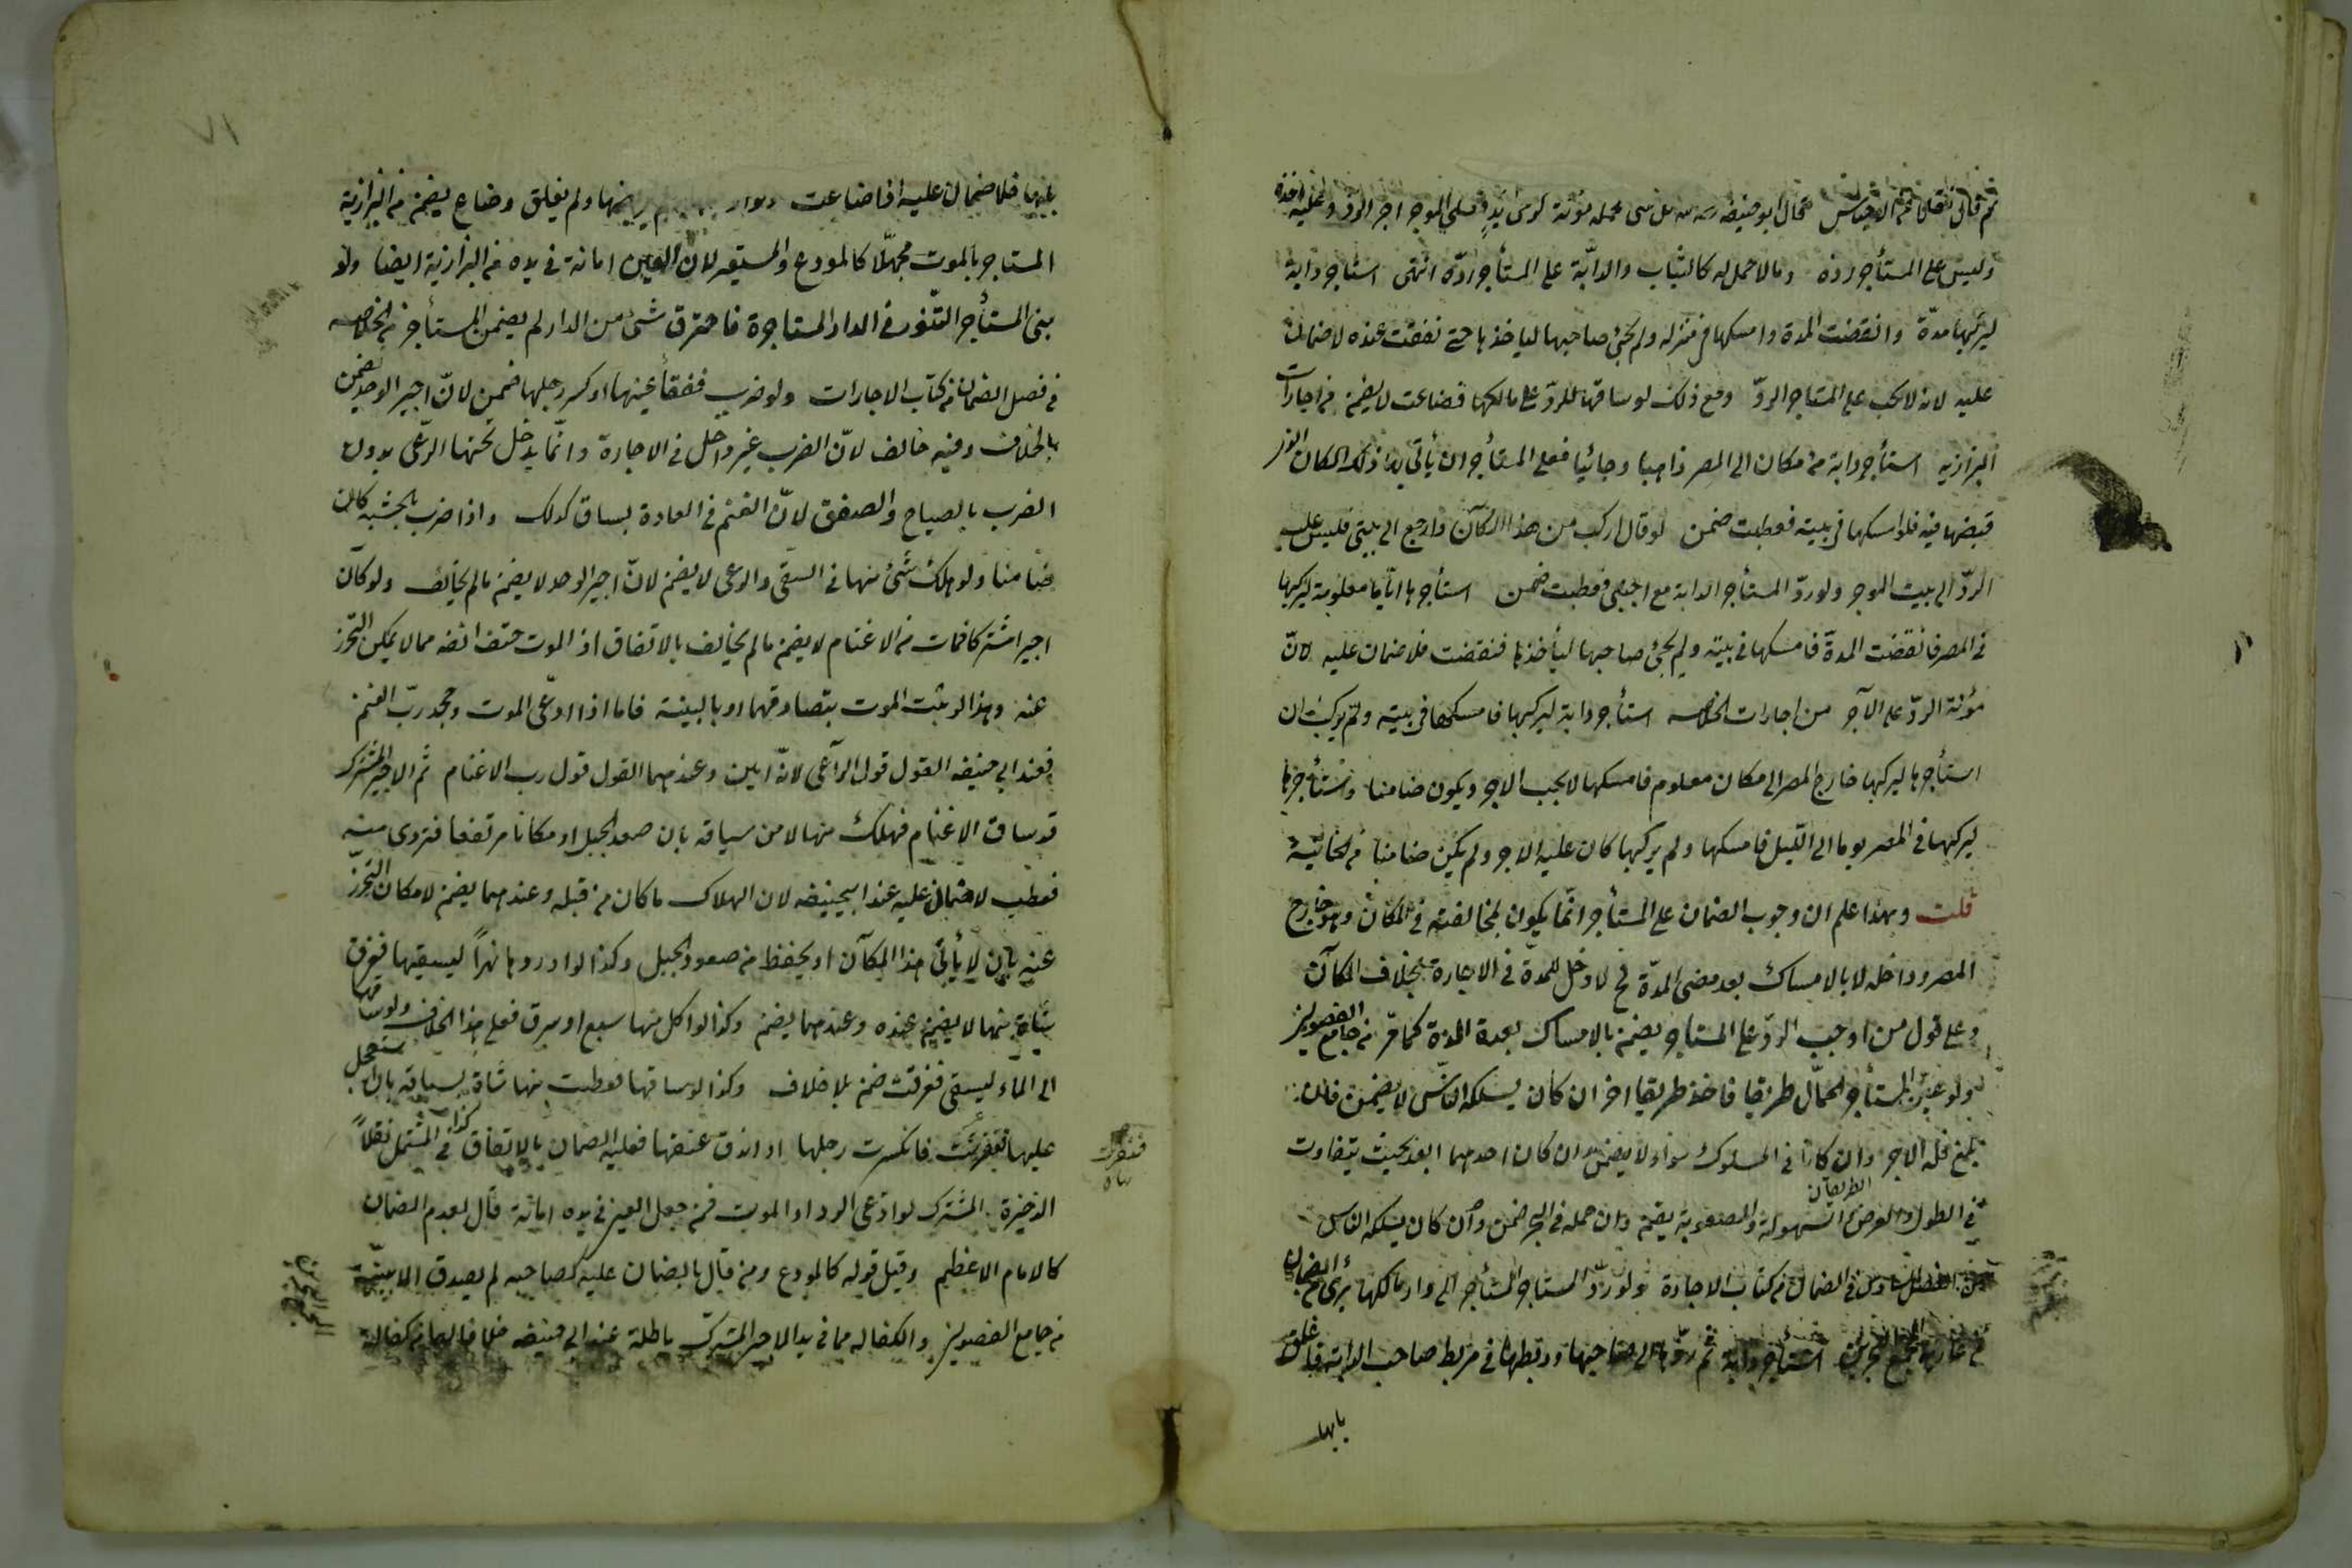 ثم قال نقلا عن الاجناس قال ابو حنيفة كل شئ لحمله مؤنة فعلى الموجر اجر الرد وعليه اخذه
وليس على المستأجر رده وما لا حمل له كالثياب والدابّة على المستأجر ردّه انتهى استأجر دابة
ليركبها مدّة وانقضت المدة وامسكها فى منزله ولم يجئ صاحبها لياخذها حتى نفقت عنده لا ضمان
عليه لانه لا يجب على المستاجر الردّ ومع ذلك لو ساقها للردّ على مالكها فضاعت لا يضمن من اجارات
البزازيه استأجر دابة من مكان الى المصر ذاهبا وجائيا فعلى المستأجر ان يأتى بها ذلك المكان الذى
قبضها فيه فلو امسكها فى بيته فعطبت ضمن لو قال اركب من هذا المكان وارجع الى بيتى فليس عليه
الردّ الى بيت الموجر ولو ردّ المستأجر الدابة مع اجنبى فعطبت ضمن استأجرها ايّاما معلومة ليركبها
فى المصر فانقضت المدة فامسكها فى بيته ولم يجئ صاحبها ليأخذها فنفقت فلا ضمان عليه لانّ
مؤنة الردّ على الآجر من اجارات الخلاصه استأجر دابة ليركبها فامسكها فى بيته ولم يركب ان
استأجرها ليركبها خارج المصر الى مكان معلوم فامسكها لا يجب الاجر ويكون ضامنا وان استأجرها
ليركبها فى المصر يوما الى الليل فامسكها ولم يركبها كان عليه الاجر ولم يكن ضامنا من الخانية
قلت وبهذا علم ان وجوب الضمان على المستأجر انّما يكون لمخالفته فى المكان وهو خارج
المصر وداخله لا بالامساك بعد مضى المدّة لا دخل للمدة فى الاجارة بخلاف المكان
وعلى قول من اوجب الردّ على المستاجر يضمن بالامساك بعد المدة كما مرّ من جامع الفصولين
ولو عيّن المستأجر للحمّال طريقا فاخذ طريقا اخر ان كان يسلكه الناس لا يضمن فان
بلغ فله الاجر وان كانا فى السلوك سواء لا يضمن وان كان احدهما ابعد بحيث يتفاوت
الطريقان
فى الطول والعرض والسهولة والصعوبة يضمن وان حمله فى البحر ضمن وان كان يسلكه الناس
من الفصل السادس فى الضمان من كتاب الاجارة ولو ردّ المستاجر المستأجر الى دار مالكها برئ من الضمان
من استأجر دابة ثم ردّها الى صاحبها وربطها فى مربط صاحب الدابة واغلق
بابها
٧١
بابها فلا ضمان عليه اذا ضاعت ولم يغلق وضاع يضمن من البزازية
المستاجر بالموت مجهّلا كالمودع والمستعير لان العين امانة فى يده من البزازية ايضا ولو
بنى المستأجر التنّور فى الدار المستاجرة فاحترق شئ من الدار لم يضمن المستأجر من الخلاصه
فى فصل الضمان من كتاب الاجارات ولو ضرب ففقأ عينها او كسر رجلها ضمن لانّ اجير الوحد يضمن
بالخلاف وفيه خالف لانّ الضرب غير داخل فى الاجارة وانّما يدخل تحتها الرّعى بدون
الضرب بالصياح والصفق لانّ الغنم فى العادة يساق كذلك واذا ضرب بالخشبة كان
ضامنا ولو هلك شئ منها فى السقى والرعى لا يضمن لانّ اجير الوحد لا يضمن ما لم يخالف ولو كان
اجيرا مشتركا فمات من الاغنام لا يضمن ما لم يخالف بالاتفاق اذ الموت حتف انفه مما لا يمكن التحرز
عنه وهذا لو ثبت الموت بتصادقهما او بالبينة فاما اذا ادّعى الموت وجحد ربّ الغنم
فعند ابى حنيفه القول قول الرّاعى لانّه امين وعندهما القول قول رب الاغنام ثم الاجير المشترك
لو ساق الاغنام فهلك منها لا من سياقه بان صعد الجبل او مكانا مرتفعا فتردى منه
فعطب لا ضمان عليه عند ابيحنيفه لان الهلاك ما كان من قبله وعندهما يضمن لامكان التحرّز
عنه بان لا يأتى هذا المكان او يحفظ من صعود الجبل وكذا لو اوردوها نهرا ليسقيها فغرق
شاة منها لا يضمن عنده وعندهما يضمن وكذا لو اكل منها سبع او سرق فعلى هذا الخلاف ولو ساقها
الى الماء ليسقى فغرقت ضمن بلا خلاف وكذا لو ساقها فعطبت منها شاة بسياقه بان استعجل
عليها فعثرت فانكسرت رجلها او اندق عنقها فعليه الضمان بالاتفاق كذا فى المشتمل نقلاً
الذخيرة المشترك لو ادّعى الرد او الموت فمن جعل العين فى يده امانة قال بعدم الضمان
كالامام الاعظم وقيل قوله كالمودع ومن قال بالضمان عليه كصاحبيه لم يصدق الا ببينة
من جامع الفصولين والكفاله مما فى يد الاجير المشترك باطلة عند ابى حنيفه خلافا لهما من كفالة